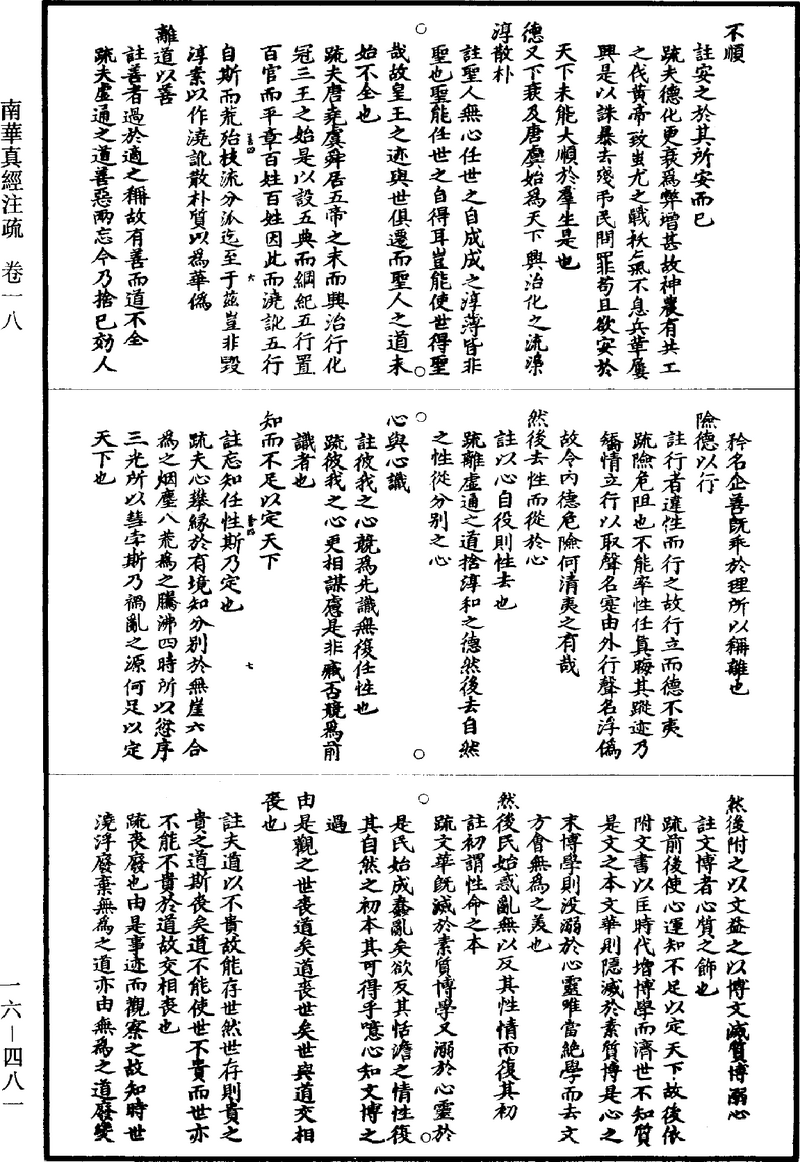 不順
註安之於其所安而已
疏夫德化更衰為弊增甚故神農有共工
之伐黄帝致蚩尤之戰祅氣不息兵革屢
興是以誅暴去殘弔民問罪苟且欲安於
天下未能大順於羣生是也
德又下衰及唐虞始為天下興治化之流澆
淳散朴
註聖人無心任世之自成成之淳薄皆非
聖也聖能任世之自得耳豈能使世得聖
哉故皇王之迹與世俱遷而聖人之道未
始不全也
疏夫唐堯虞舜居五帝之末而興治行化
冠三王之始是以設五典而綱紀五行置
百官而平章百姓百姓因此而澆訛五行
自斯而荒殆枝流分派迄至于茲豈非毀
淳素以作澆訛散朴質以為華僞
離道以善
註善者過於適之稱故有善而道不全
疏夫虛通之道善惡兩忘今乃捨己効人
矜名企善旣乖於理所以稱離也
險德以行
註行者違性而行之故行立而德不夷
疏險危阻也不能率性任真晦其蹤迹乃
矯情立行以取聲名寔由外行聲名浮僞
故令内德危險何清夷之有哉
然後去性而從於心
註以心自役則性去也
疏離虛通之道捨淳和之德然後去自然
之性從分别之心
心與心識
註彼我之心競為先識無復任性也
疏彼我之心更相謀慮是非臧否競為前
識者也
知而不足以定天下
註忘知任性斯乃定也
疏夫心攀緣於有境知分别於無崖六合
為之烟塵八荒為之騰沸四時所以愆序
三光所以彗孛斯乃禍亂之源何足以定
天下也
然後附之以文益之以博文滅質博溺心
註文博者心質之飾也
疏前後使心運知不足以定天下故後依
附文書以匡時代增博學而濟世不知質
是文之本文華則隱滅於素質博是心之
末博學則没溺於心靈唯當絶學而去文
方會無為之美也
然後民始惑亂無以反其性情而復其初
註初謂性命之本
疏文華旣滅於素質博學又溺於心靈於
是民始成蠢亂矣欲反其恬澹之情性復
其自然之初本其可得乎噫心知文博之
過
由是觀之世喪道矣道喪世矣世與道交相
喪也
註夫道以不貴故能存世然世存則貴之
貴之道斯喪矣道不能使世不貴而世亦
不能不貴於道故交相喪也
疏喪廢也由是事迹而觀察之故知時世
澆浮廢棄無為之道亦由無為之道廢變
南華真經注疏 卷一八
一六—四八一